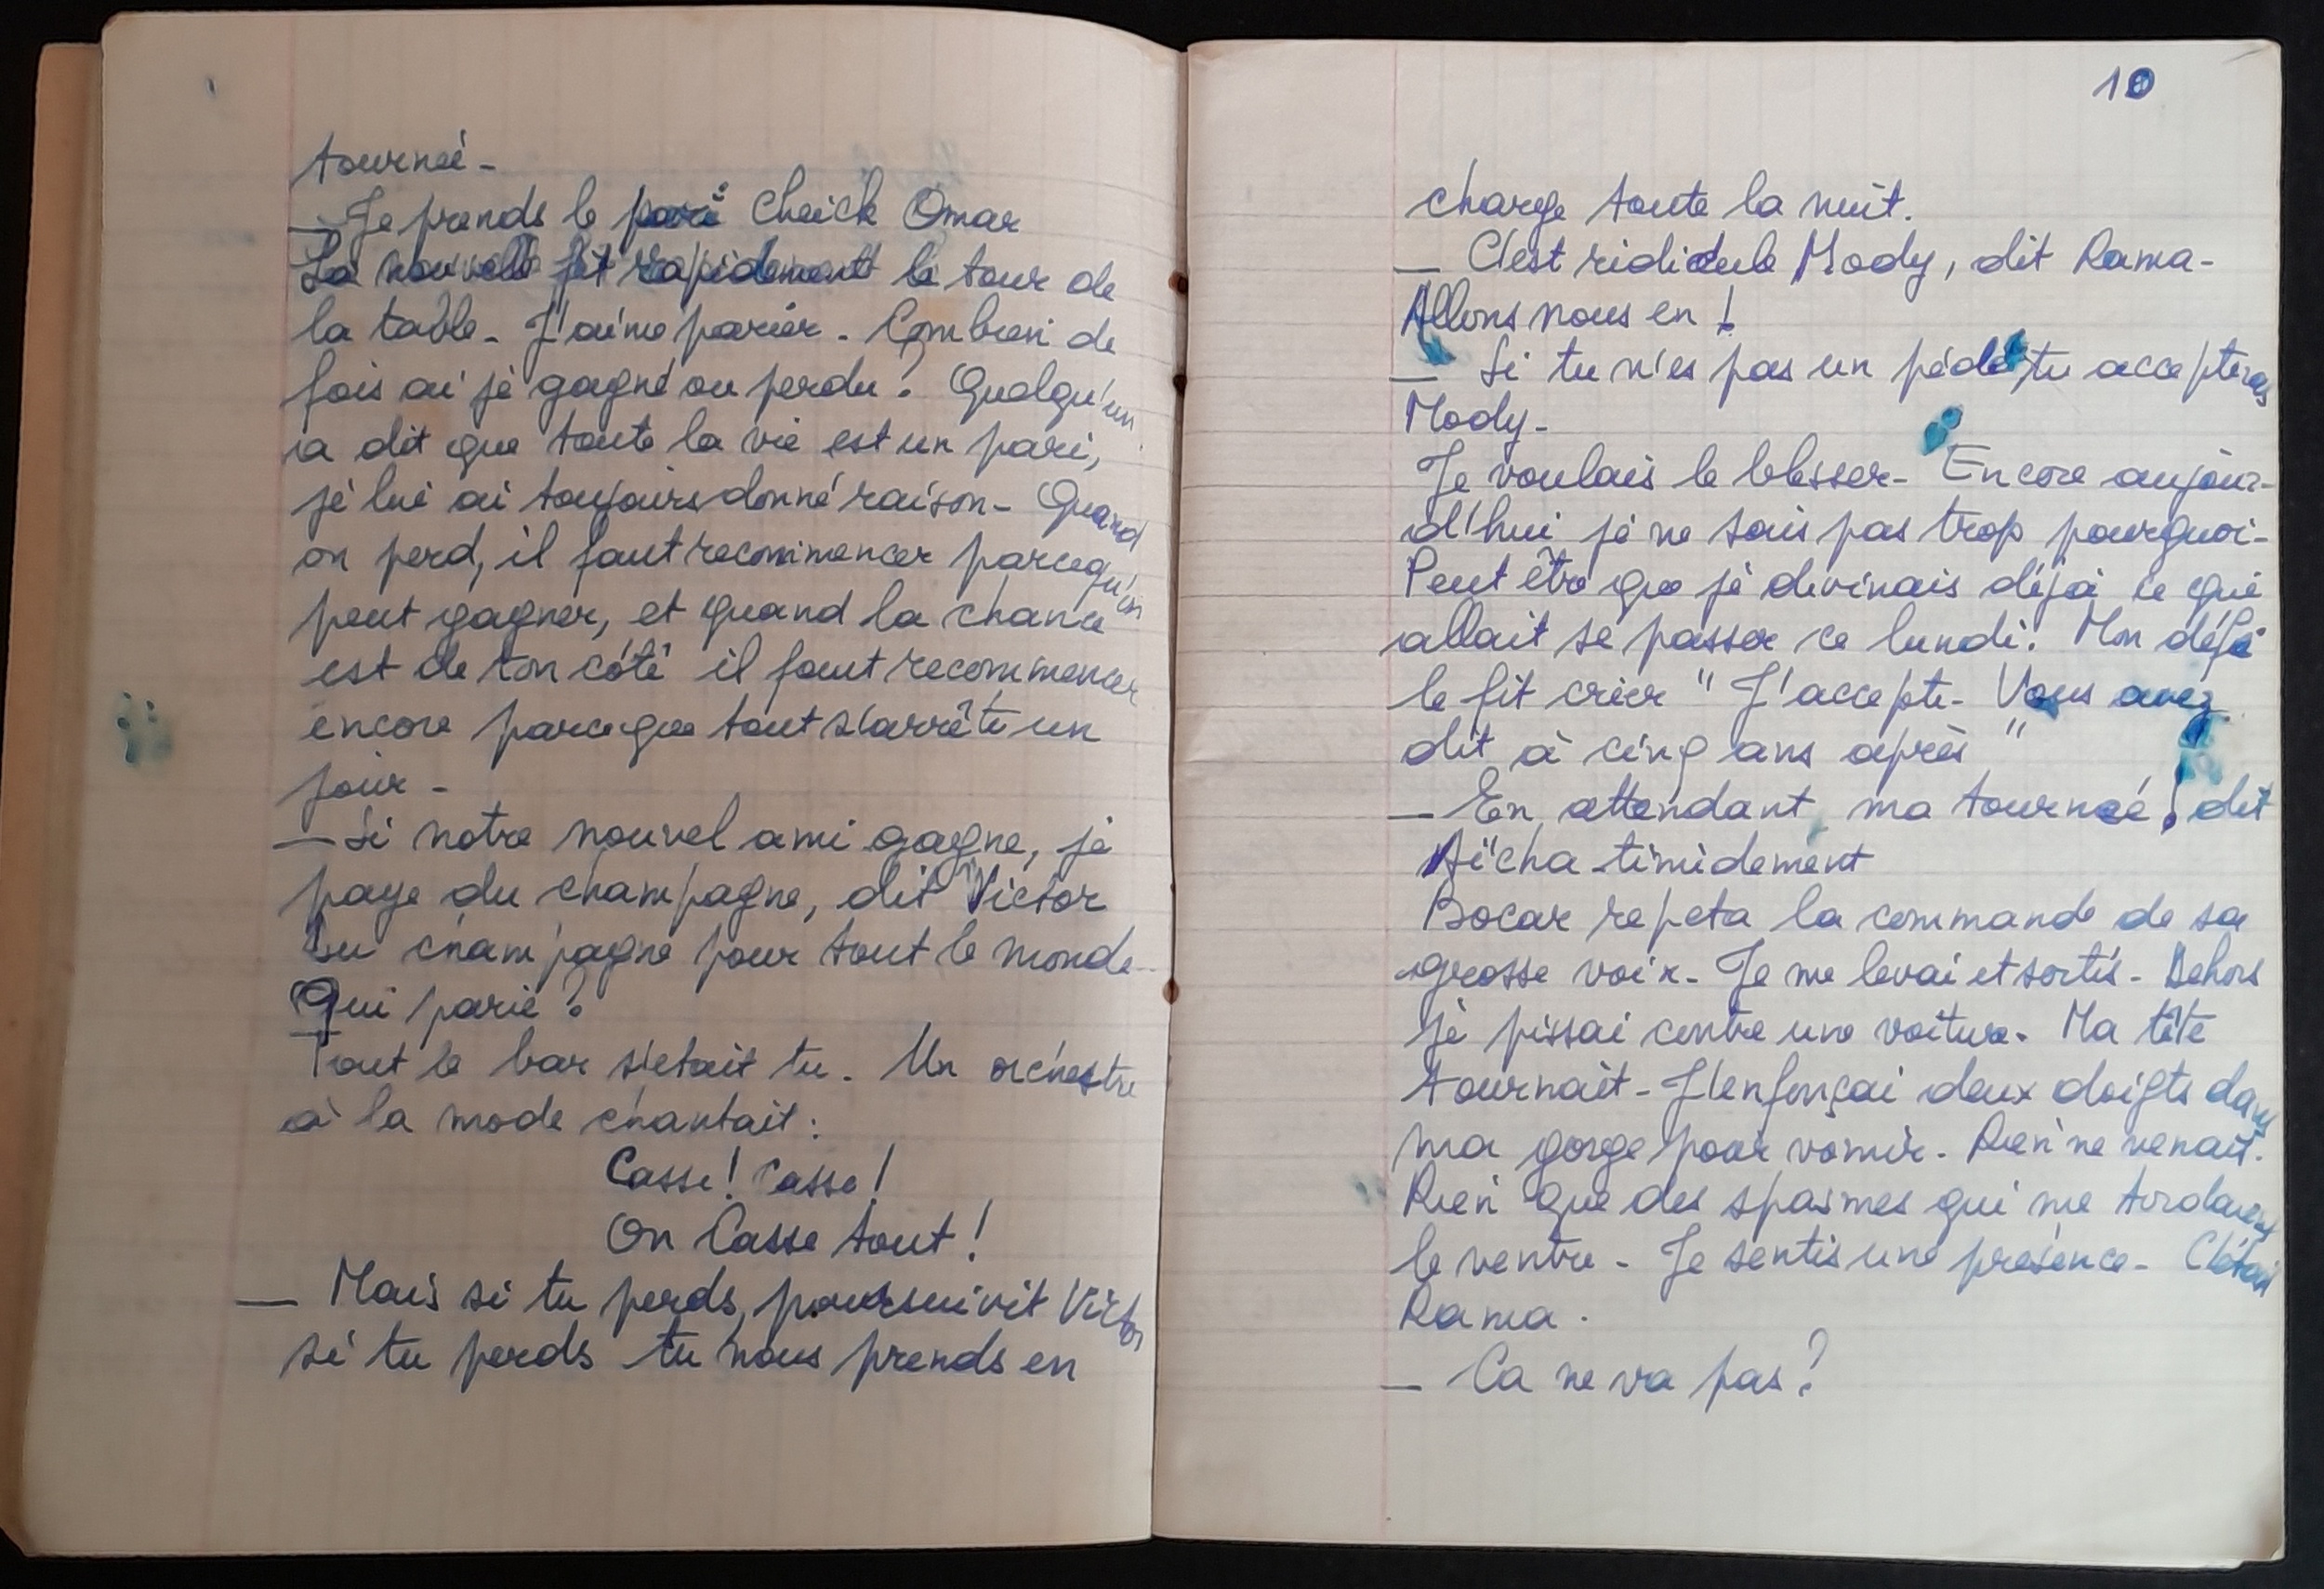 tourneé -
— Je prends le pari Cheick Omar
La nouvelle fit rapidement le tour de
la table - J'aime parier - Combien de
fois ai je gagné ou perdu ? Quelqu'un
a dit que toute la vie est un pari,
je lui ai toujours donné raison - Quand
on perd, il faut recommencer parcequ'on
peut gagner, et quand la chance
est de ton côté il faut recommencer
encore parceque tout s'arrête un
jour -
— Si notre nouvel ami gagne, je
paye du champagne, dit Victor
Du champagne pour tout le monde
Qui parie ?
Tout le bar s'etait tu . Un orchestre
à la mode chantait :
Casse ! Casse !
On Casse tout !
— Mais si tu perds, poursuivit Victor
si tu perds tu nous prends en
10
charge toute la nuit.
— C'est ridicule Mody, dit Rama -
Allons nous en !
— Si tu n'es pas un pédé, tu accepteras
Mody -
Je voulais le blesser - Encore aujour-
d'hui je ne sais pas trop pourquoi -
Peut être que je devinais déjà ce qui
allait se passer ce lundi. Mon défi
le fit crier " J'accepte - Vous avez
dit à cinq ans après "
— En attendant ma tourneé ! dit
Aïcha timidement
Bocar repeta la commande de sa
grosse voix - Je me levai et sortis - Dehors
je pissai contre une voiture. Ma tête
tournait - J'enfonçai deux doigts dans
ma gorge pour vomir. Rien ne venait.
Rien que des spasmes qui me tordaient
le ventre - Je sentis une présence - C'était
Rama .
— Ca ne va pas ?